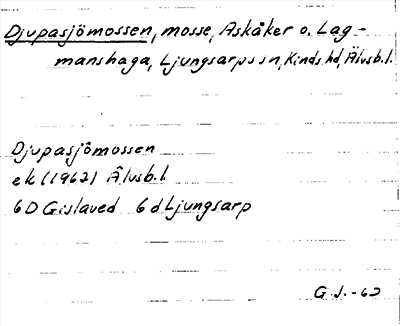 Djupasjömossen, mosse, Askåker o. Lag-
manshaga, Ljungsarps sn, Kinds hd, Älvsb. l.
Djupasjömossen
ek (1962) Älvsb. l
6D Gislaved 6d Ljungsarp
G.J. -62